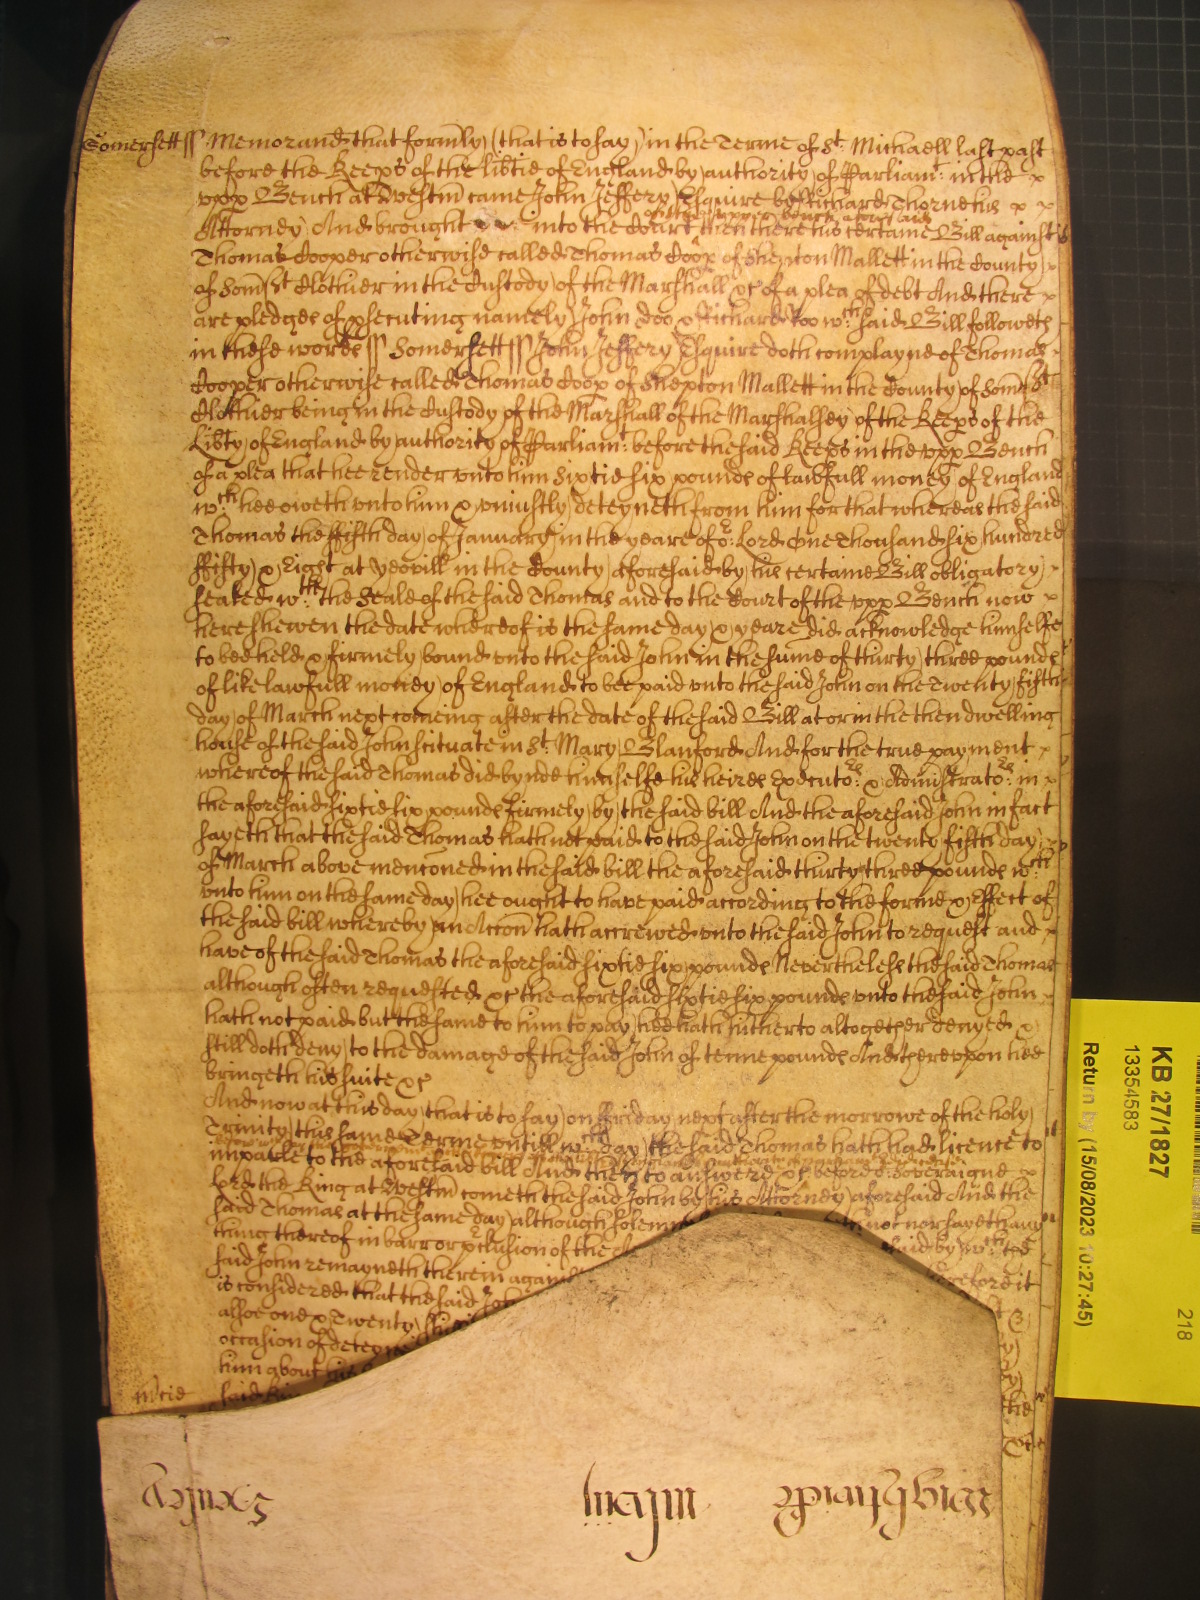 Somersett ss Memorand that formly (that is to say) in the Terme of St. Michaell last past
before the Keeps of the libtie of England by authority of Parliamt. in the
upp Bench at Westm came John Jeffery Esquire by Richard Thorne his
of the upper bench aforesaid
Attorney And brought into the Court then there his certaine Bill against
Thomas Cooper otherwise called Thomas Coop of Shepton Mallett in the County
of Som'st Clothier in the Custody of the Marshall &c of a plea of debt And there
are pledges of psecuting namely John Doo & Richard Roo wch. said Bill followeth
in these words ss Somersett ss John Jeffery Esquire doth complayne of Thomas
Cooper otherwise called Thomas Coop of Shepton Mallett in the County of Som'st
Clothier being in the Custody of the Marshall of the Marshallsey of the Keeps of the
Libty of England by authority of Parliamt. before the said Keeps in the upp Bench
of a plea that hee render unto him sixtie six pounds of lawfull money of England
wch. hee oweth unto him & uniustly deteyneth from him for that whereas the said
Thomas the ffifth day of January in the yeare of or. Lord One Thousand six hundred
ffifty & Eight at Yeovill in the County aforesaid by his certaine Bill obligatory
sealed wth the Seale of the said Thomas and to the Court of the upp Bench now
here shewen the date whereof is the same day & yeare did acknowledge himselfe
to bee held & firmely bound unto the said John in the sume of thirty three pounds
of like lawfull money of England to bee paid unto the said John on the Twenty fifth
day of March next comeing after the date of the said Bill at or in the then dwelling
house of the said John scituate in St. Mary Blanford And for the true payment
whereof the said Thomas did bynde himselfe his heires Executors. & Administrators. in
the aforesaid sixtie six pounds firmely by the said bill And the aforesaid John in fact
sayeth that the said Thomas hath not paid to the said John on the twenty fifth day
of March above menconed in the said bill the aforesaid thirty three pounds wch.
unto him on the same day hee ought to have paid according to the forme & Effect of
the said bill whereby an Accon hath accrewed unto the said John to request and
have of the said Thomas the aforesaid sixtie six pounds Neverthelesse the said Thomas
although often requested &c the aforesaid sixtie six pounds unto the said John
hath not paid but the same to him to pay hee hath hitherto altogether denyed &
still doth deny to the damage of the said John of tenne pounds And thereupon hee
bringeth his suite &c
And now at this day that is to say on ffriday next after the morrowe of the holy
Trinity this same Terme untill wch day the said Thomas hath had licence to
imparle to the aforesaid bill And then to answere &c before or Soveraigne
Lord the King at Westm cometh the said John by his Attorney aforesaid And the
said Thomas at the same day although solemn not nor sayeth any
thing thereof in barr or pclusion of the said by wch the
said John remayneth therein against therefore it
is considered that the said John
alsoe one & Twenty
occasion of
him about his
m'cie said
KB 27/1827
13354583
218
Return by (15/08/2023 10:27:45)